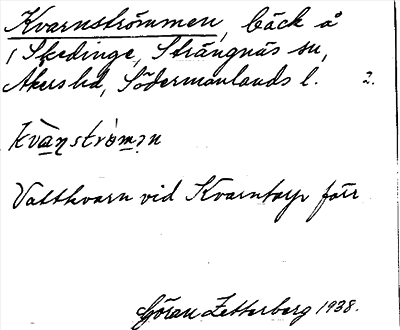 Kvarnströmmen, bäck å
i Skedinge, Strängnäs sn,
Åkers hd, Södermanlands l. 2.
kvànströmən
Vattkvarn vid Kvarntorp förr
Göran Zetterberg 1938.